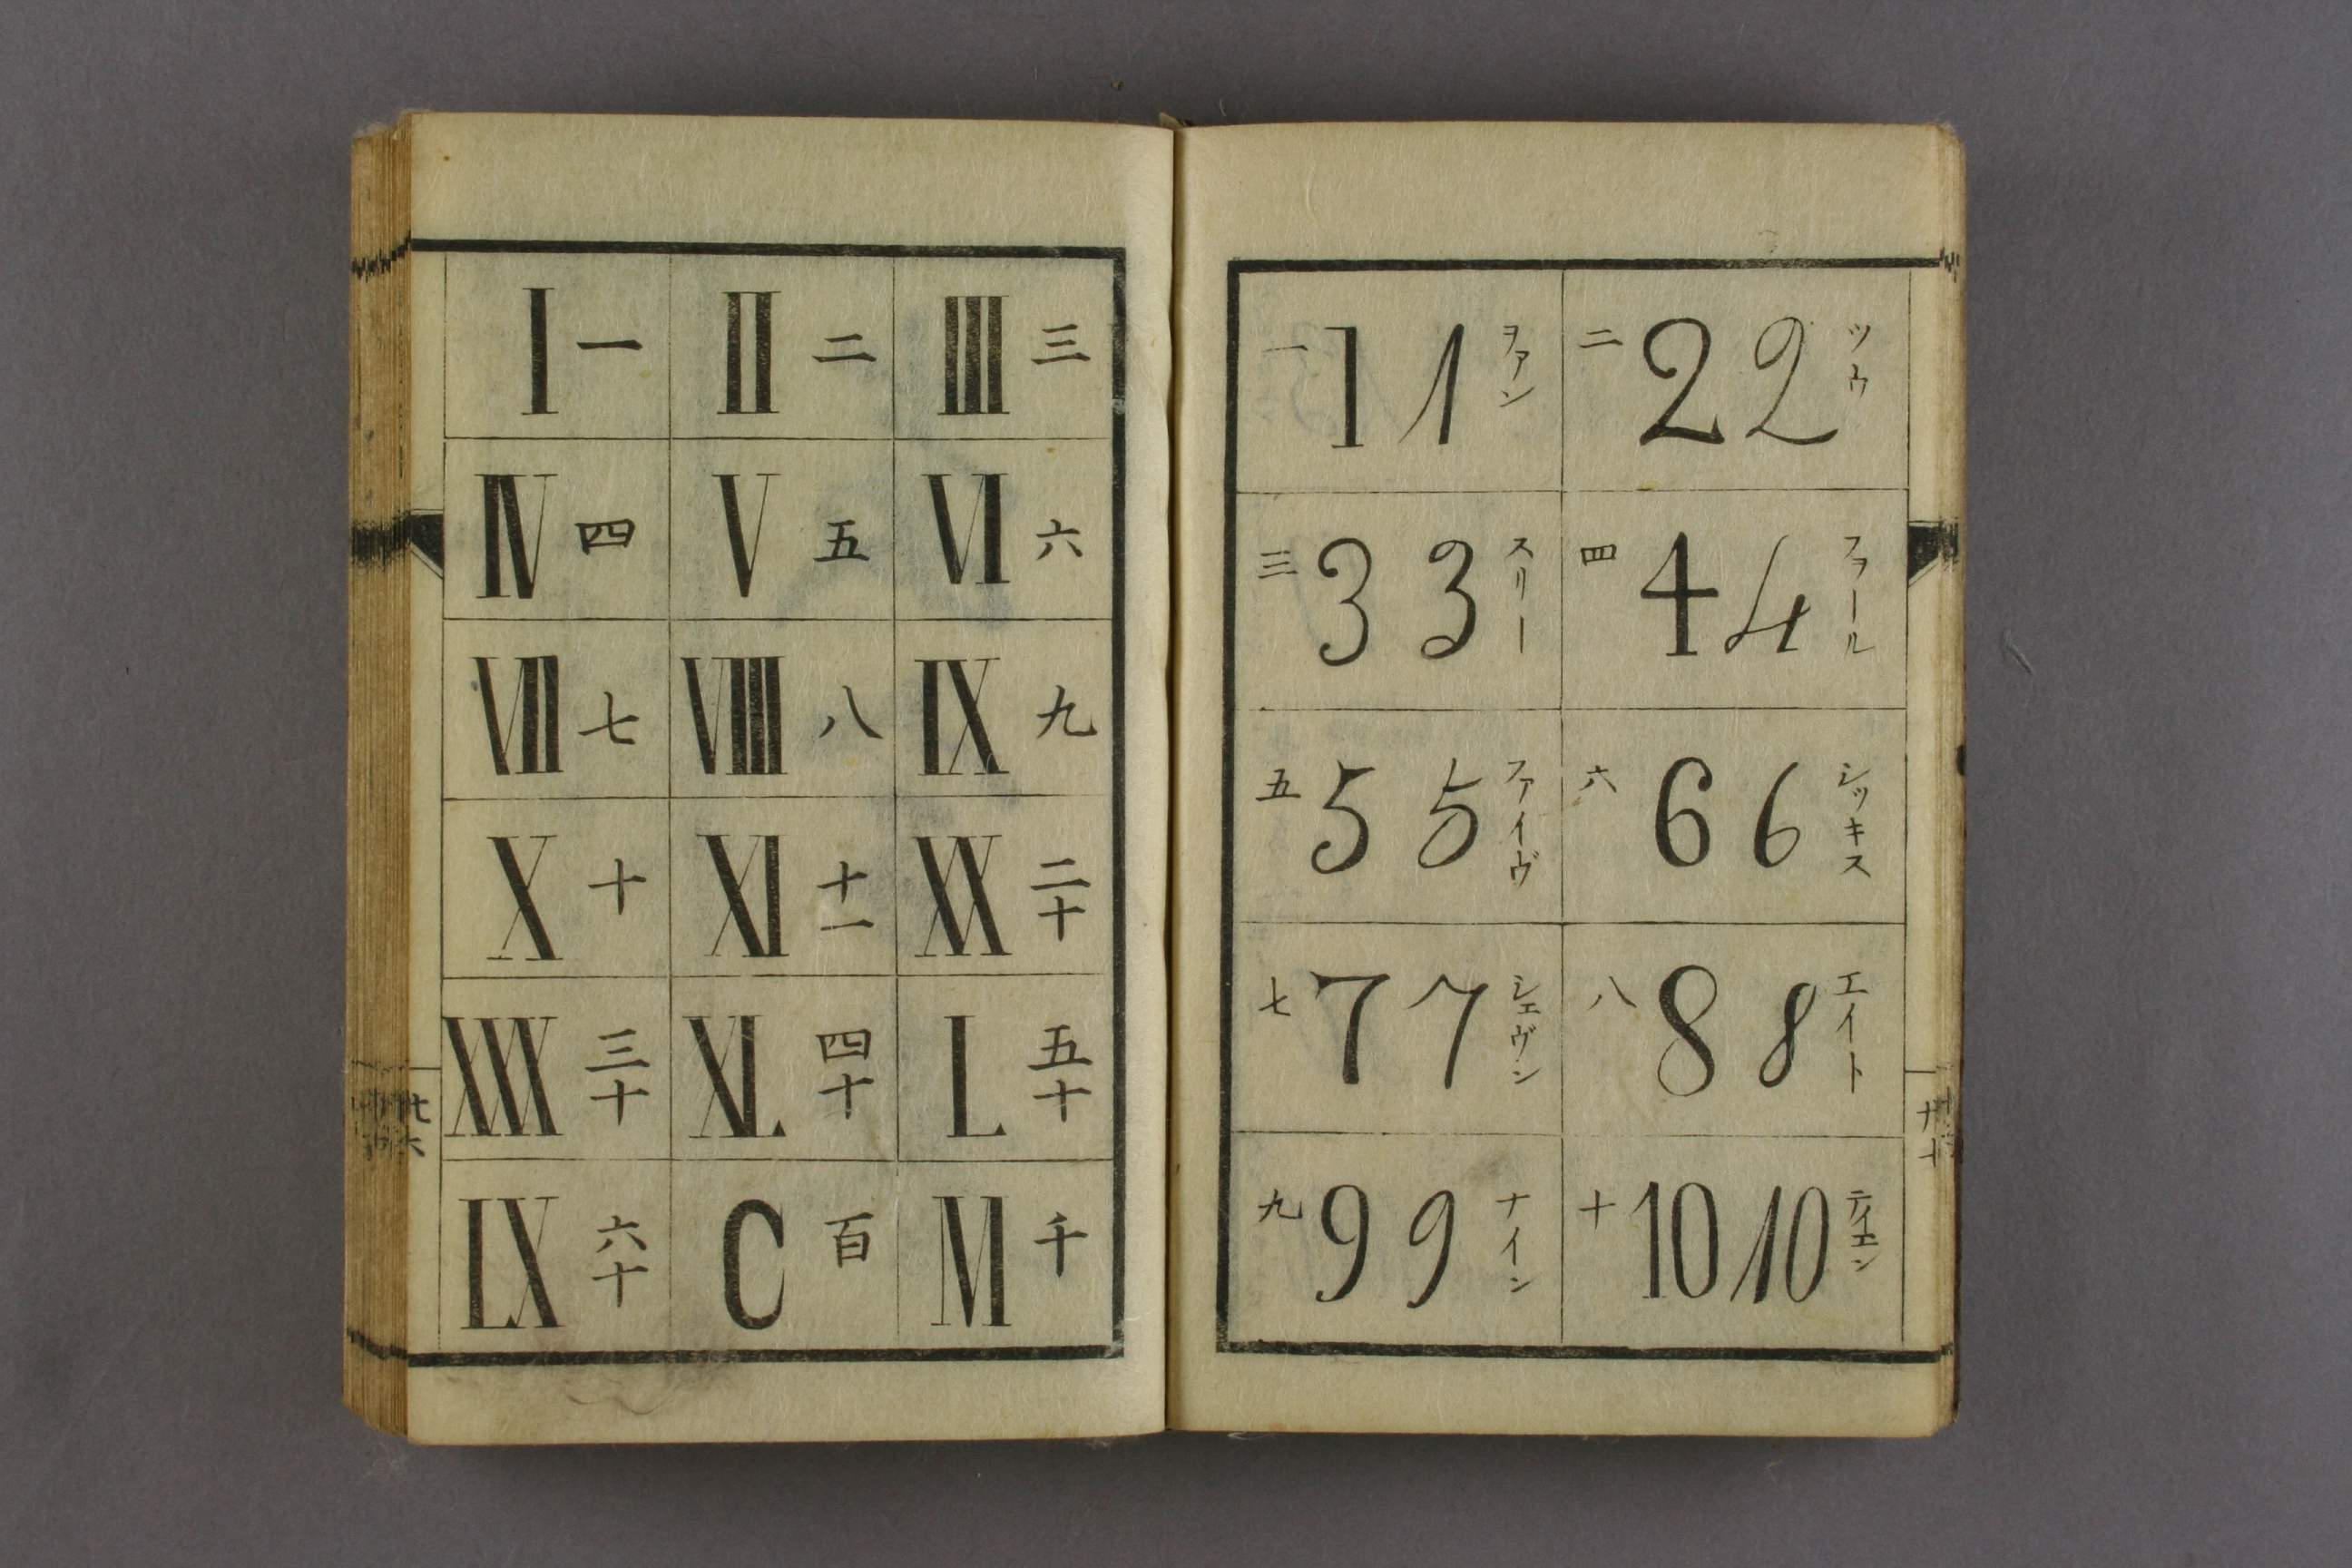 I 一
II 二
III 三
IV 四
V 五
VI 六
VII 七
VIII 八
IX 九
X 十
XI 十一
XX 二十
XXX 三十
XL 四十
L 五十
LX 六十
C 百
M 千
一 1 1 ヲァン
二 2 2 ツウ
三 3 3 スリー
四 4 4 フヲール
五 5 5 ファイヴ
六 6 6 シッキス
七 7 7 シェヴン
八 8 8 エイト
九 9 9 ナイン
十 10 10 テイエン